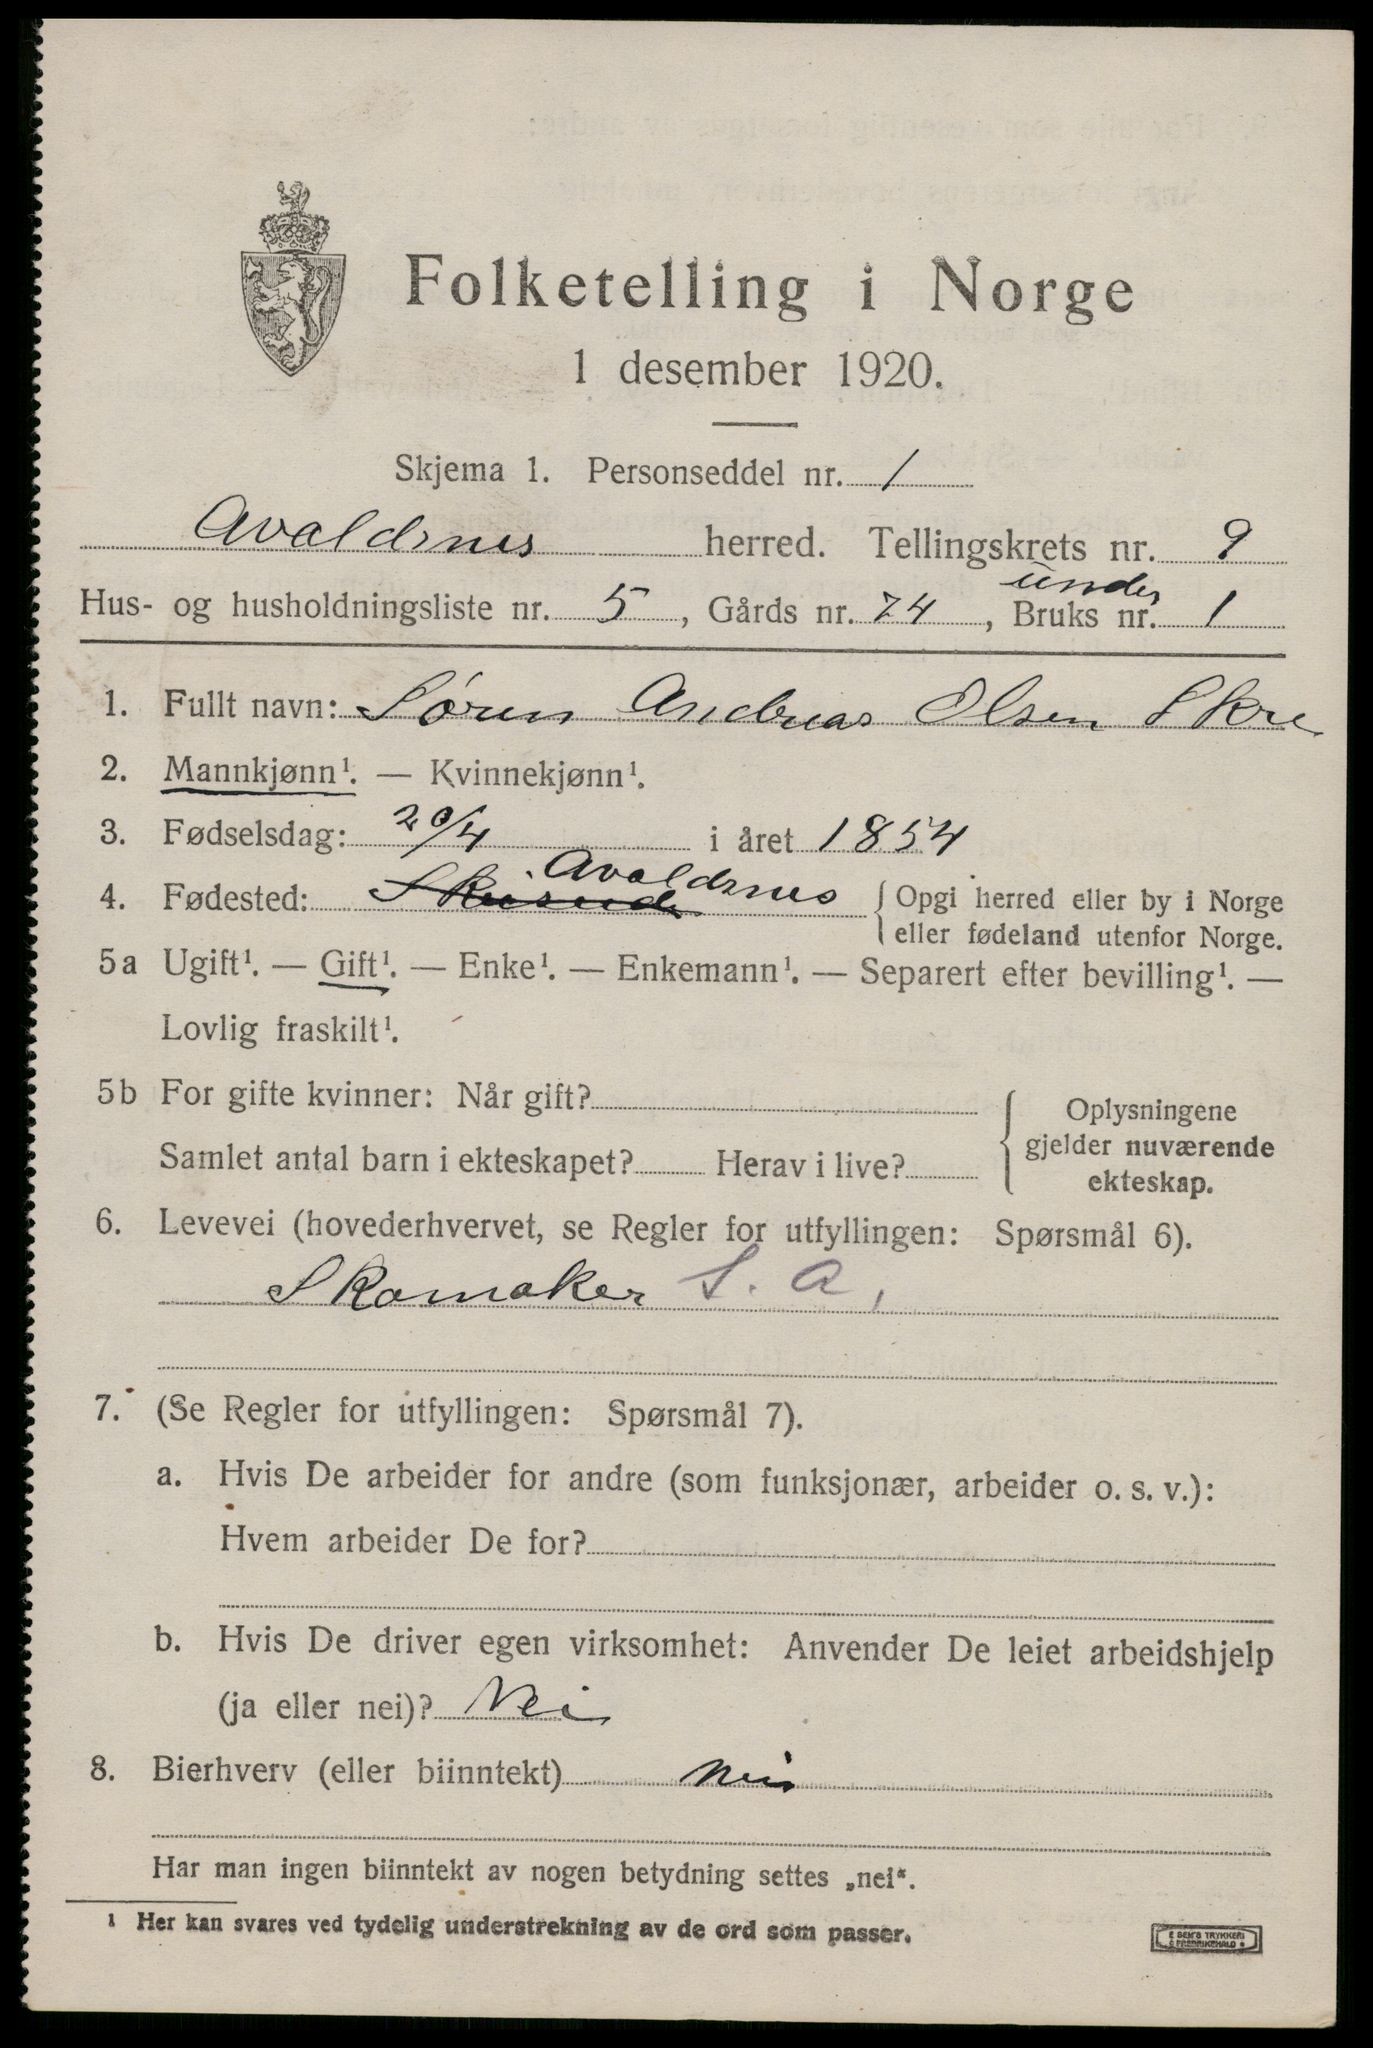 Folketelling i Norge
1 desember 1920.
Skjema 1. Personseddel nr. 1
Avaldsnes herred. Tellingskrets nr. 9
under
Hus- og husholdningsliste nr. 5, Gårds nr. 74, Bruks nr. 1
1. Fullt navn: Søren Andreas Olsen Skre
2. Mannkjønn¹. — Kvinnekjønn¹.
3. Fødselsdag: 20/4 i året 1854
4. Fødested: Avaldsnes { Opgi herred eller by i Norge
eller fødeland utenfor Norge.
5a Ugift¹. — Gift¹. — Enke¹. — Enkemann¹. — Separert efter bevilling¹. —
Lovlig fraskilt¹.
5b For gifte kvinner: Når gift?
Samlet antal barn i ekteskapet? Herav i live?
Oplysningene
gjelder nuværende
ekteskap.
6. Levevei (hovederhvervet, se Regler for utfyllingen: Spørsmål 6).
Skomaker S. A,
7. (Se Regler for utfyllingen: Spørsmål 7).
a. Hvis De arbeider for andre (som funksjonær, arbeider o. s. v.):
Hvem arbeider De for?
b. Hvis De driver egen virksomhet: Anvender De leiet arbeidshjelp
(ja eller nei)? Nei
8. Bierhverv (eller biinntekt) nei
Har man ingen biinntekt av nogen betydning settes „nei“.
¹ Her kan svares ved tydelig understrekning av de ord som passer.